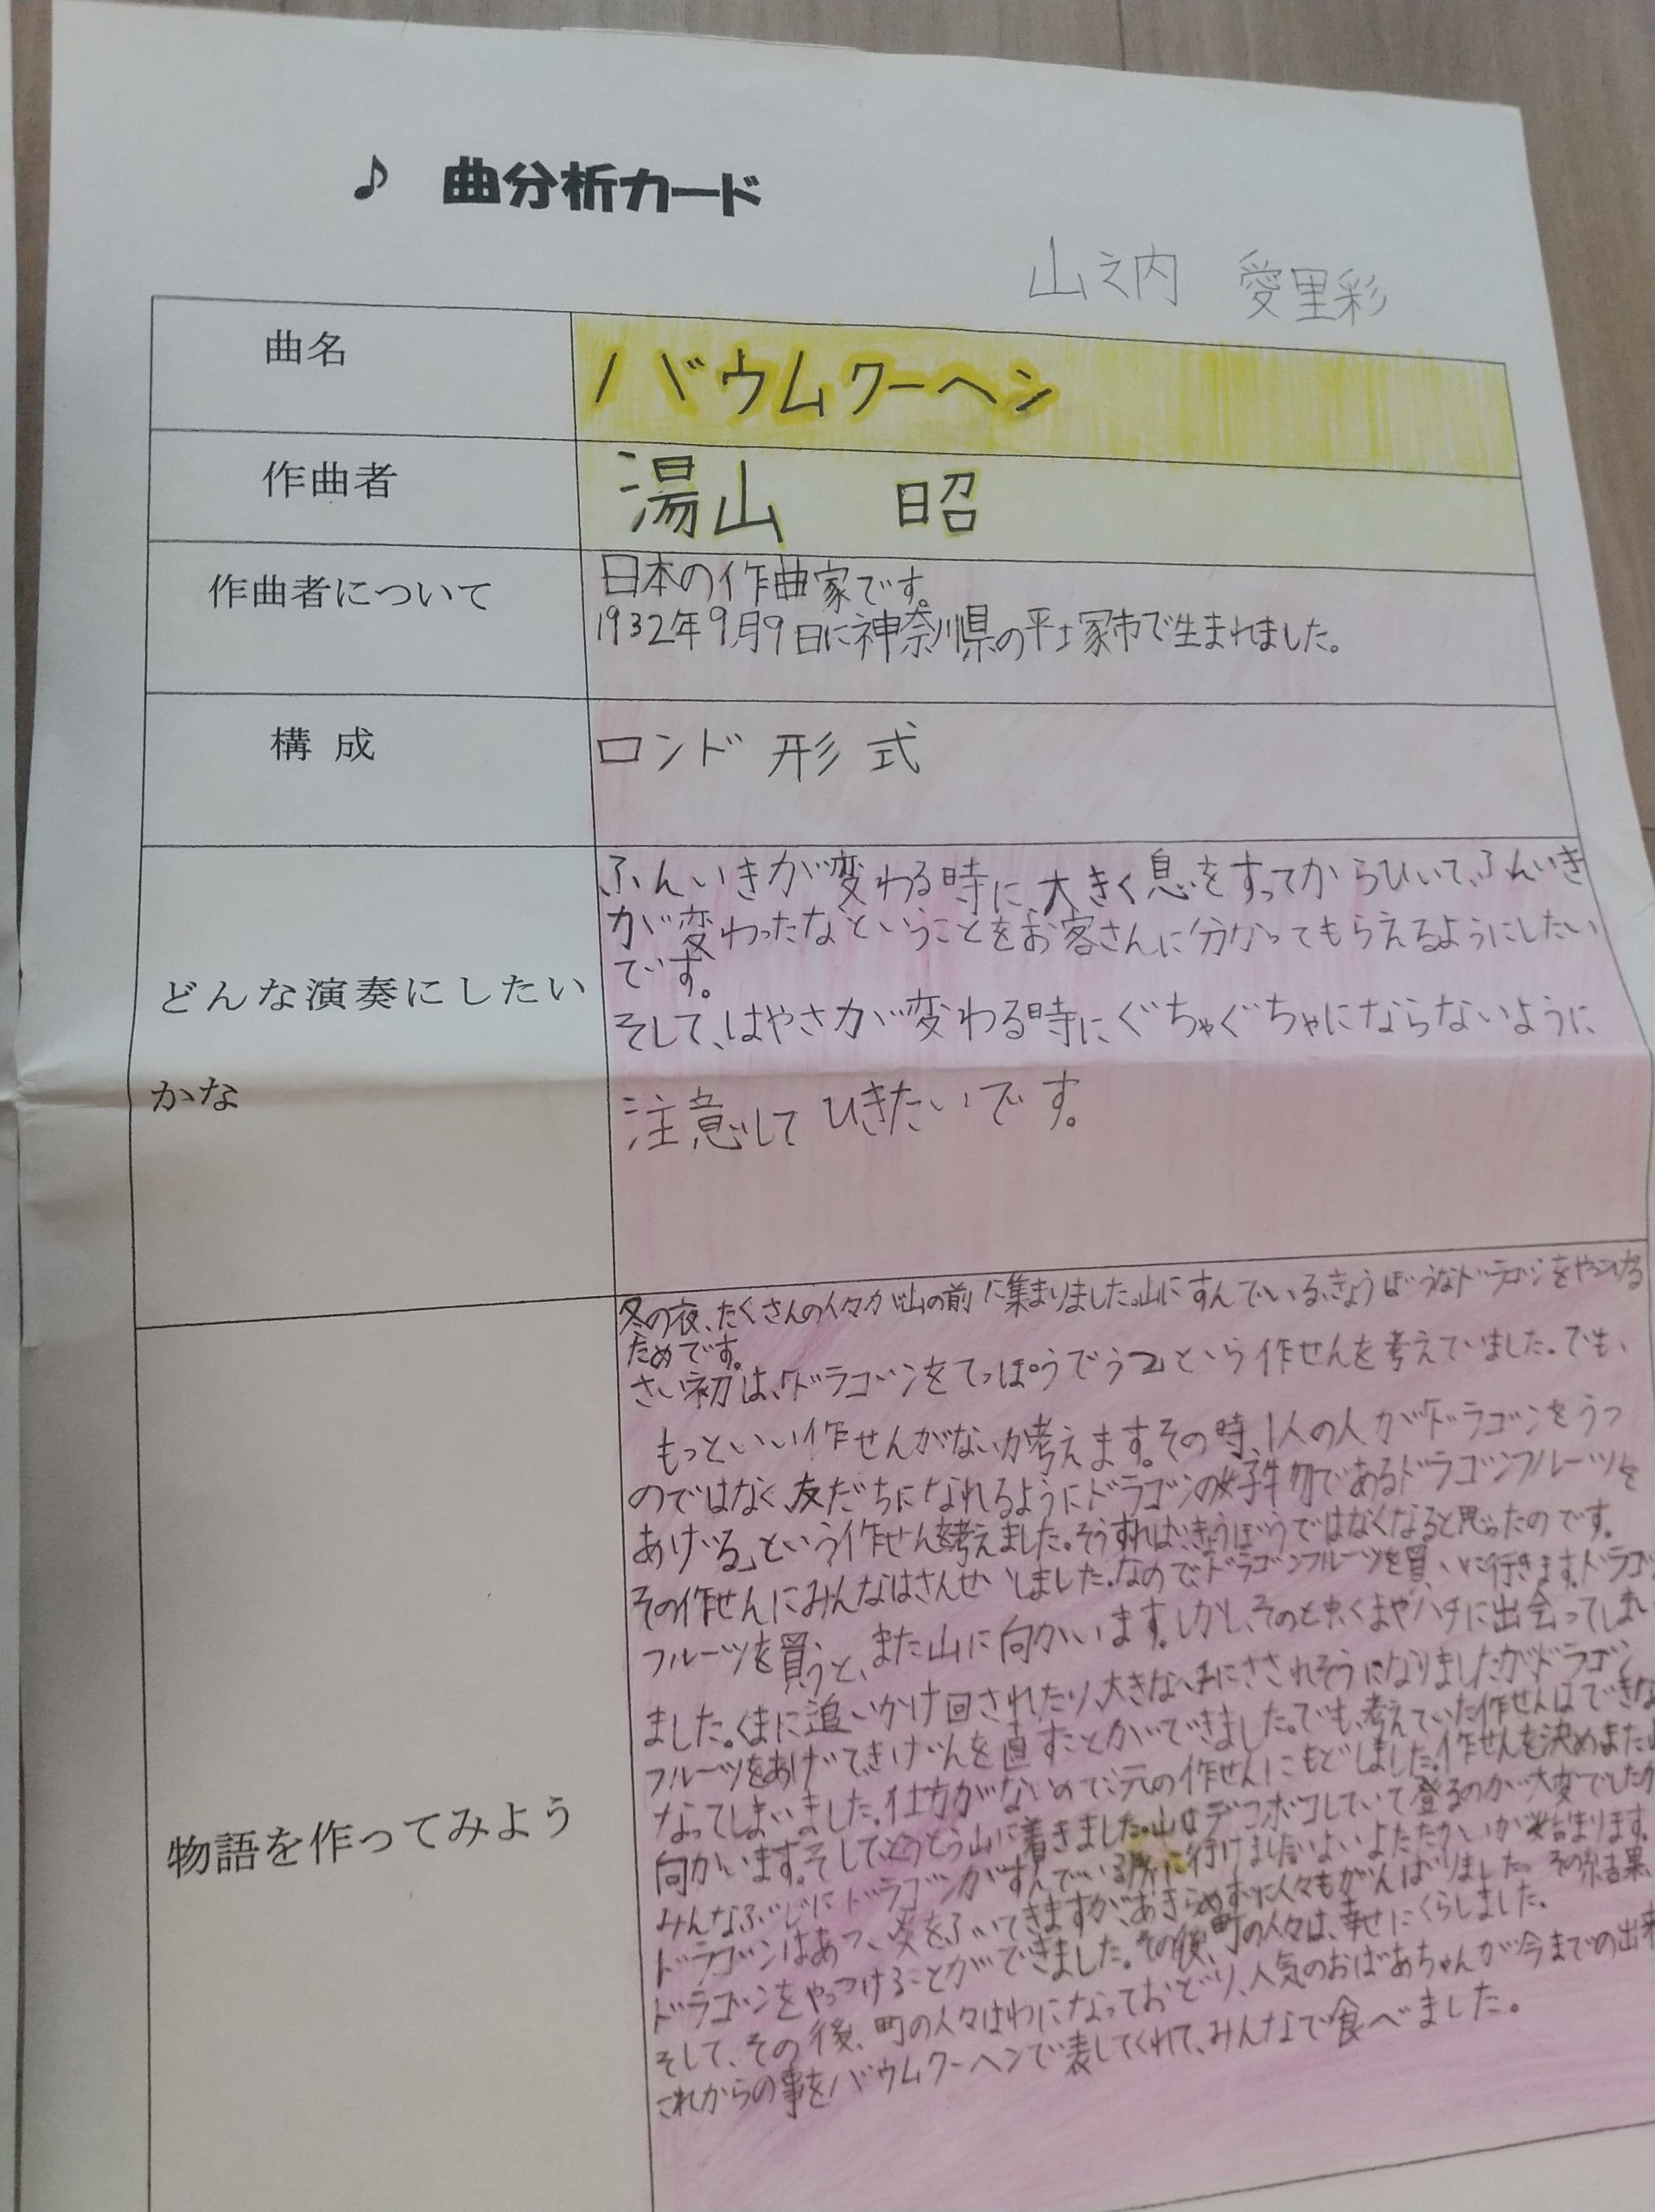 ♪ 曲分析カード
山之内 愛里彩
曲名
バウムクーヘン
作曲者
湯山 昭
作曲者について
日本の作曲家です。
1932年9月9日に神奈川県の平塚市で生まれました。
構成
ロンド形式
どんな演奏にしたい
かな
ふんいきが変わる時に、大きく息をすってからひいて、ふんいき
が変わったなということをお客さんに分かってもらえるようにしたい
です。
そして、はやさが変わる時にぐちゃぐちゃにならないように
注意してひきたいです。
物語を作ってみよう
冬の夜、たくさんの人々が山の前に集まりました。山にすんでいる、きょうぼうなドラゴンをやっつける
ためです。
さい初は、「ドラゴンをてっぽうでうつ」という作せんを考えていました。でも、
もっといい作せんがないか考えます。その時、1人の人が「ドラゴンをうつ
のではなく、友だちになれるようにドラゴンの好物であるドラゴンフルーツを
あげる」という作せんを考えました。そうすればきょうぼうではなくなると思ったのです。
その作せんにみんなはさんせいしました。なので、ドラゴンフルーツを買いに行きます。ドラゴン
フルーツを買うと、また山に向かいます。しかし、そのとき、くまやハチに出会ってしまい
ました。くまに追いかけ回されたり、大きなハチにさされそうになりましたが、ドラゴン
フルーツをあげてきげんを直すことができました。でも、考えていた作せんはできな
なってしまいました。仕方がないので、元の作せんにもどしました。作せんを決めまた山
向かいます。そして、とうとう山に着きました。山はデコボコしていて登るのが大変でしたが
みんなぶじにドラゴンがすんでいる所に行けました。いよいよたたかいが始まります。
ドラゴンはあつい炎をふいてきますが、あきらめずに人々もがんばりました。その結果、
ドラゴンをやっつけることができました。その後、町の人々は、幸せにくらしました。
そして、その後、町の人々はわになっておどり、人気のおばあちゃんが今までの出来
これからの事をバウムクーヘンで表してくれて、みんなで食べました。